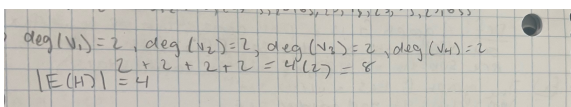 deg(V₁)=2, deg(V₂)=2, deg(V₃)=2, deg(V₄)=2
2+2+2+2 = 4(2) = 8
|E(H)| = 4